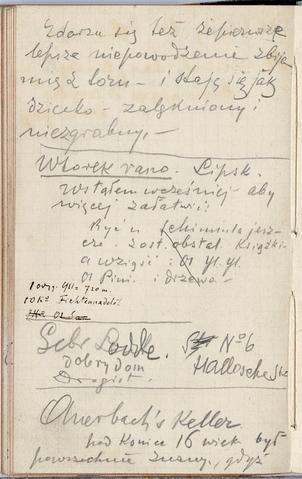 Zdarza się też że pierwsze
lepsze niepowodzenie zbija
mię z toru – i staję się jak
dziecko – zalękniony i
niezgrabny. –
Wtorek rano. Lipsk.
Wstałem wcześniej aby
więcej załatwić:
Być u Schimmla jesz-
cze. Zost. obstal. Książki
a wziąść: Ol Yl. Yl.
Ol Pini. i drzewa –
10 Ko Fichtennadelöl
Gebr. No 6
dobry dom Hallosche Str
Drogist.
Auerbach's Keller
pod koniec 16 wiek był
powszechnie znany, gdyż